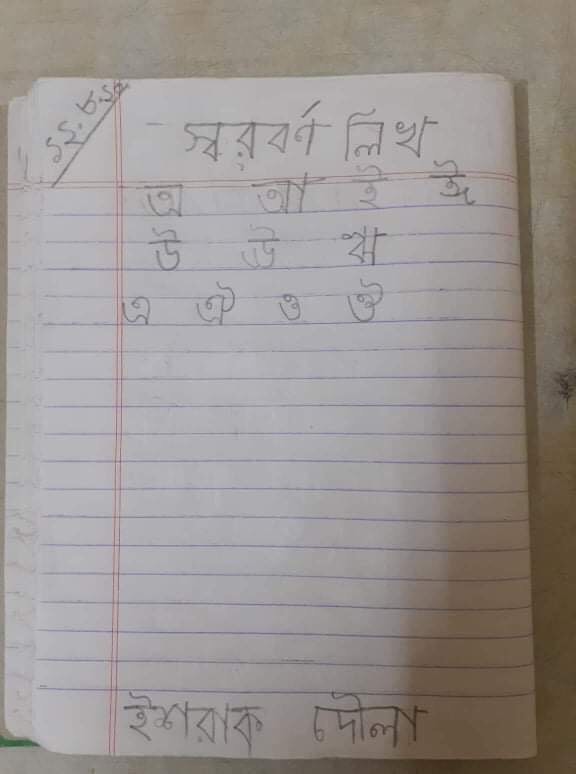 স্বরবর্ণ লিখ
অ আ ই ঈ
উ ঊ ঋ
এ ঐ ও ঔ
ইশরাক দৌলা